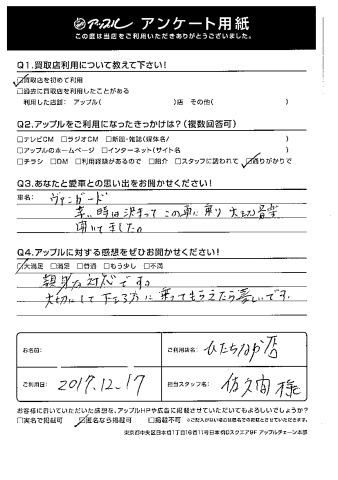 アップル アンケート用紙
この度は当店をご利用いただきありがとうございました。
Q1.買取店利用について教えて下さい!
☑買取店を初めて利用
□過去に買取店を利用したことがある
利用した店舗： アップル( )店 その他( )
Q2.アップルをご利用になったきっかけは?(複数回答可)
□テレビCM □ラジオCM □新聞・雑誌(媒体名/ )
□アップルのホームページ □インターネット(サイト名 )
□チラシ □DM □利用経験があるので □紹介 □スタッフに誘われて ☑通りがかりで
Q3.あなたと愛車との思い出をお聞かせください!
車名： ヴァンガード
若い時は決まってこの車に乗り 大切な音楽
聞いてました。
Q4.アップルに対する感想をぜひお聞かせください!
☑大満足 □満足 □普通 □もう少し □不満
親身な対応です。
大切にして下さる方に乗ってもらえたら嬉しいです。
お名前：
ご利用店名： ひたちなか店
ご利用日： 2017.12.17
担当スタッフ名： 佐久間 様
お客様に書いていただいた感想を、アップルHPや広告に掲載させていただいてもよろしいでしょうか?
□実名で掲載可 ☑匿名なら掲載可 □掲載不可 ※ご記入がない場合は匿名での掲載とさせていただきます。
東京都中央区日本橋1丁目16番11号日本橋Dスクエア9F アップルチェーン本部